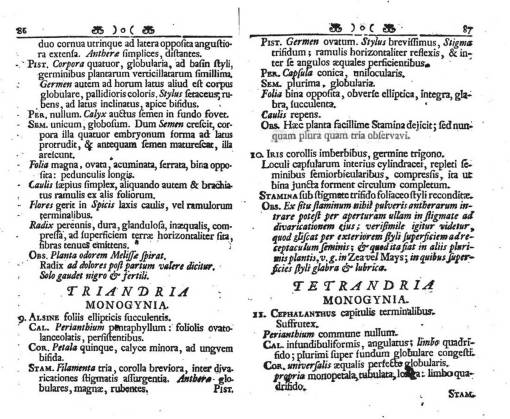 86 )o(
duo cornua utrinque ad latera opposita angustio-
ra extensa. Antheræ simplices, distantes.
PIST. Corpora quatuor, globularia, ad basin styli,
germinibus plantarum verticillatarum simillima.
Germen autem ad horum latus aliud est corpus
globulare, pallidioris coloris, Stylus setaceus, ru-
bens, ad latus inclinatus, apice bifidus.
PER. nullum. Calyx auctus semen in fundo fovet.
SEM. unicum, globosum. Dum Semen crescit, cor-
pora illa quatuor embryonum forma ad latus
prorrudit, & antequam semen maturescat, illa
arescunt.
Folia magna, ovata, acuminata, serrata, bina oppo-
sita: pedunculis longis.
Caulis sæpius simplex, aliquando autem & brachia-
tus ramulis ex alis foliorum.
Flores gerit in Spicis laxis caulis, vel ramulorum
terminalibus.
Radix perennis, dura, glandulosa, inæqualis, com-
pressa, ad superficiem terræ horizontaliter sita,
fibras tenues emittens.
OBS. Planta odorem Melissæ spirat.
Radix ad dolores post partum valere dicitur.
Solo gaudet nigro & fertili.
TRIANDRIA
MONOGYNIA.
9. ALSINE foliis ellipticis succulentis.
CAL. Perianthium pentaphyllum: foliolis ovato-
lanceolatis, persistentibus.
COR. Petala quinque, calyce minora, ad ungvem
bifida.
STAM. Filamenta tria, corolla breviora, inter diva-
ricationes stigmatis assurgentia. Antheræ glo-
bulares, magnæ, rubentes. PIST.
)o( 87
PIST. Germen ovatum. Stylus brevissimus, Stigma
trifidum; ramulis horizontaliter reflexis, & in-
ter se angulos æquales perficientibus.
PER. Capsula conica, unilocularis.
SEM. plurima, globularia.
Folia bina opposita, obverse elliptica, integra, gla-
bra, succulenta.
Caulis repens.
OBS. Hæc planta facillime Stamina dejicit; sed nun-
quam plura quam tria observavi.
10. IRIS corollis imberbibus, germine trigono.
Loculi capsularum interius cylindracei, repleti se-
minibus semiorbicularibus, compressis, ita ut
bina juncta forment circulum completum.
STAMINA sub stigmate trifido foliaceo styli recondita.
OBS. Ex situ staminum nihil pulveris antherarum in-
trare potest per aperturam ullam in stigmate ad
divaricationem ejus; verisimile igitur videtur,
quod gliscat per exteriorem styli superficiem ad re-
ceptaculum seminis; & quod ita fiat in aliis pluri-
mis plantis, v. g. in Zea vel Mays; in quibus super-
ficies styli glabra & lubrica.
TETRANDRIA
MONOGYNIA.
11. CEPHALANTHUS capitulis terminalibus.
Suffrutex.
Perianthium commune nullum.
CAL. infundibuliformis, angulatus; limbo quadri-
fido; plurimi super fundum globulare congesti.
COR. universalis æqualis perfecte globularis.
propria monopetala, tubulata, : limbo qua-
drifido. STAM.